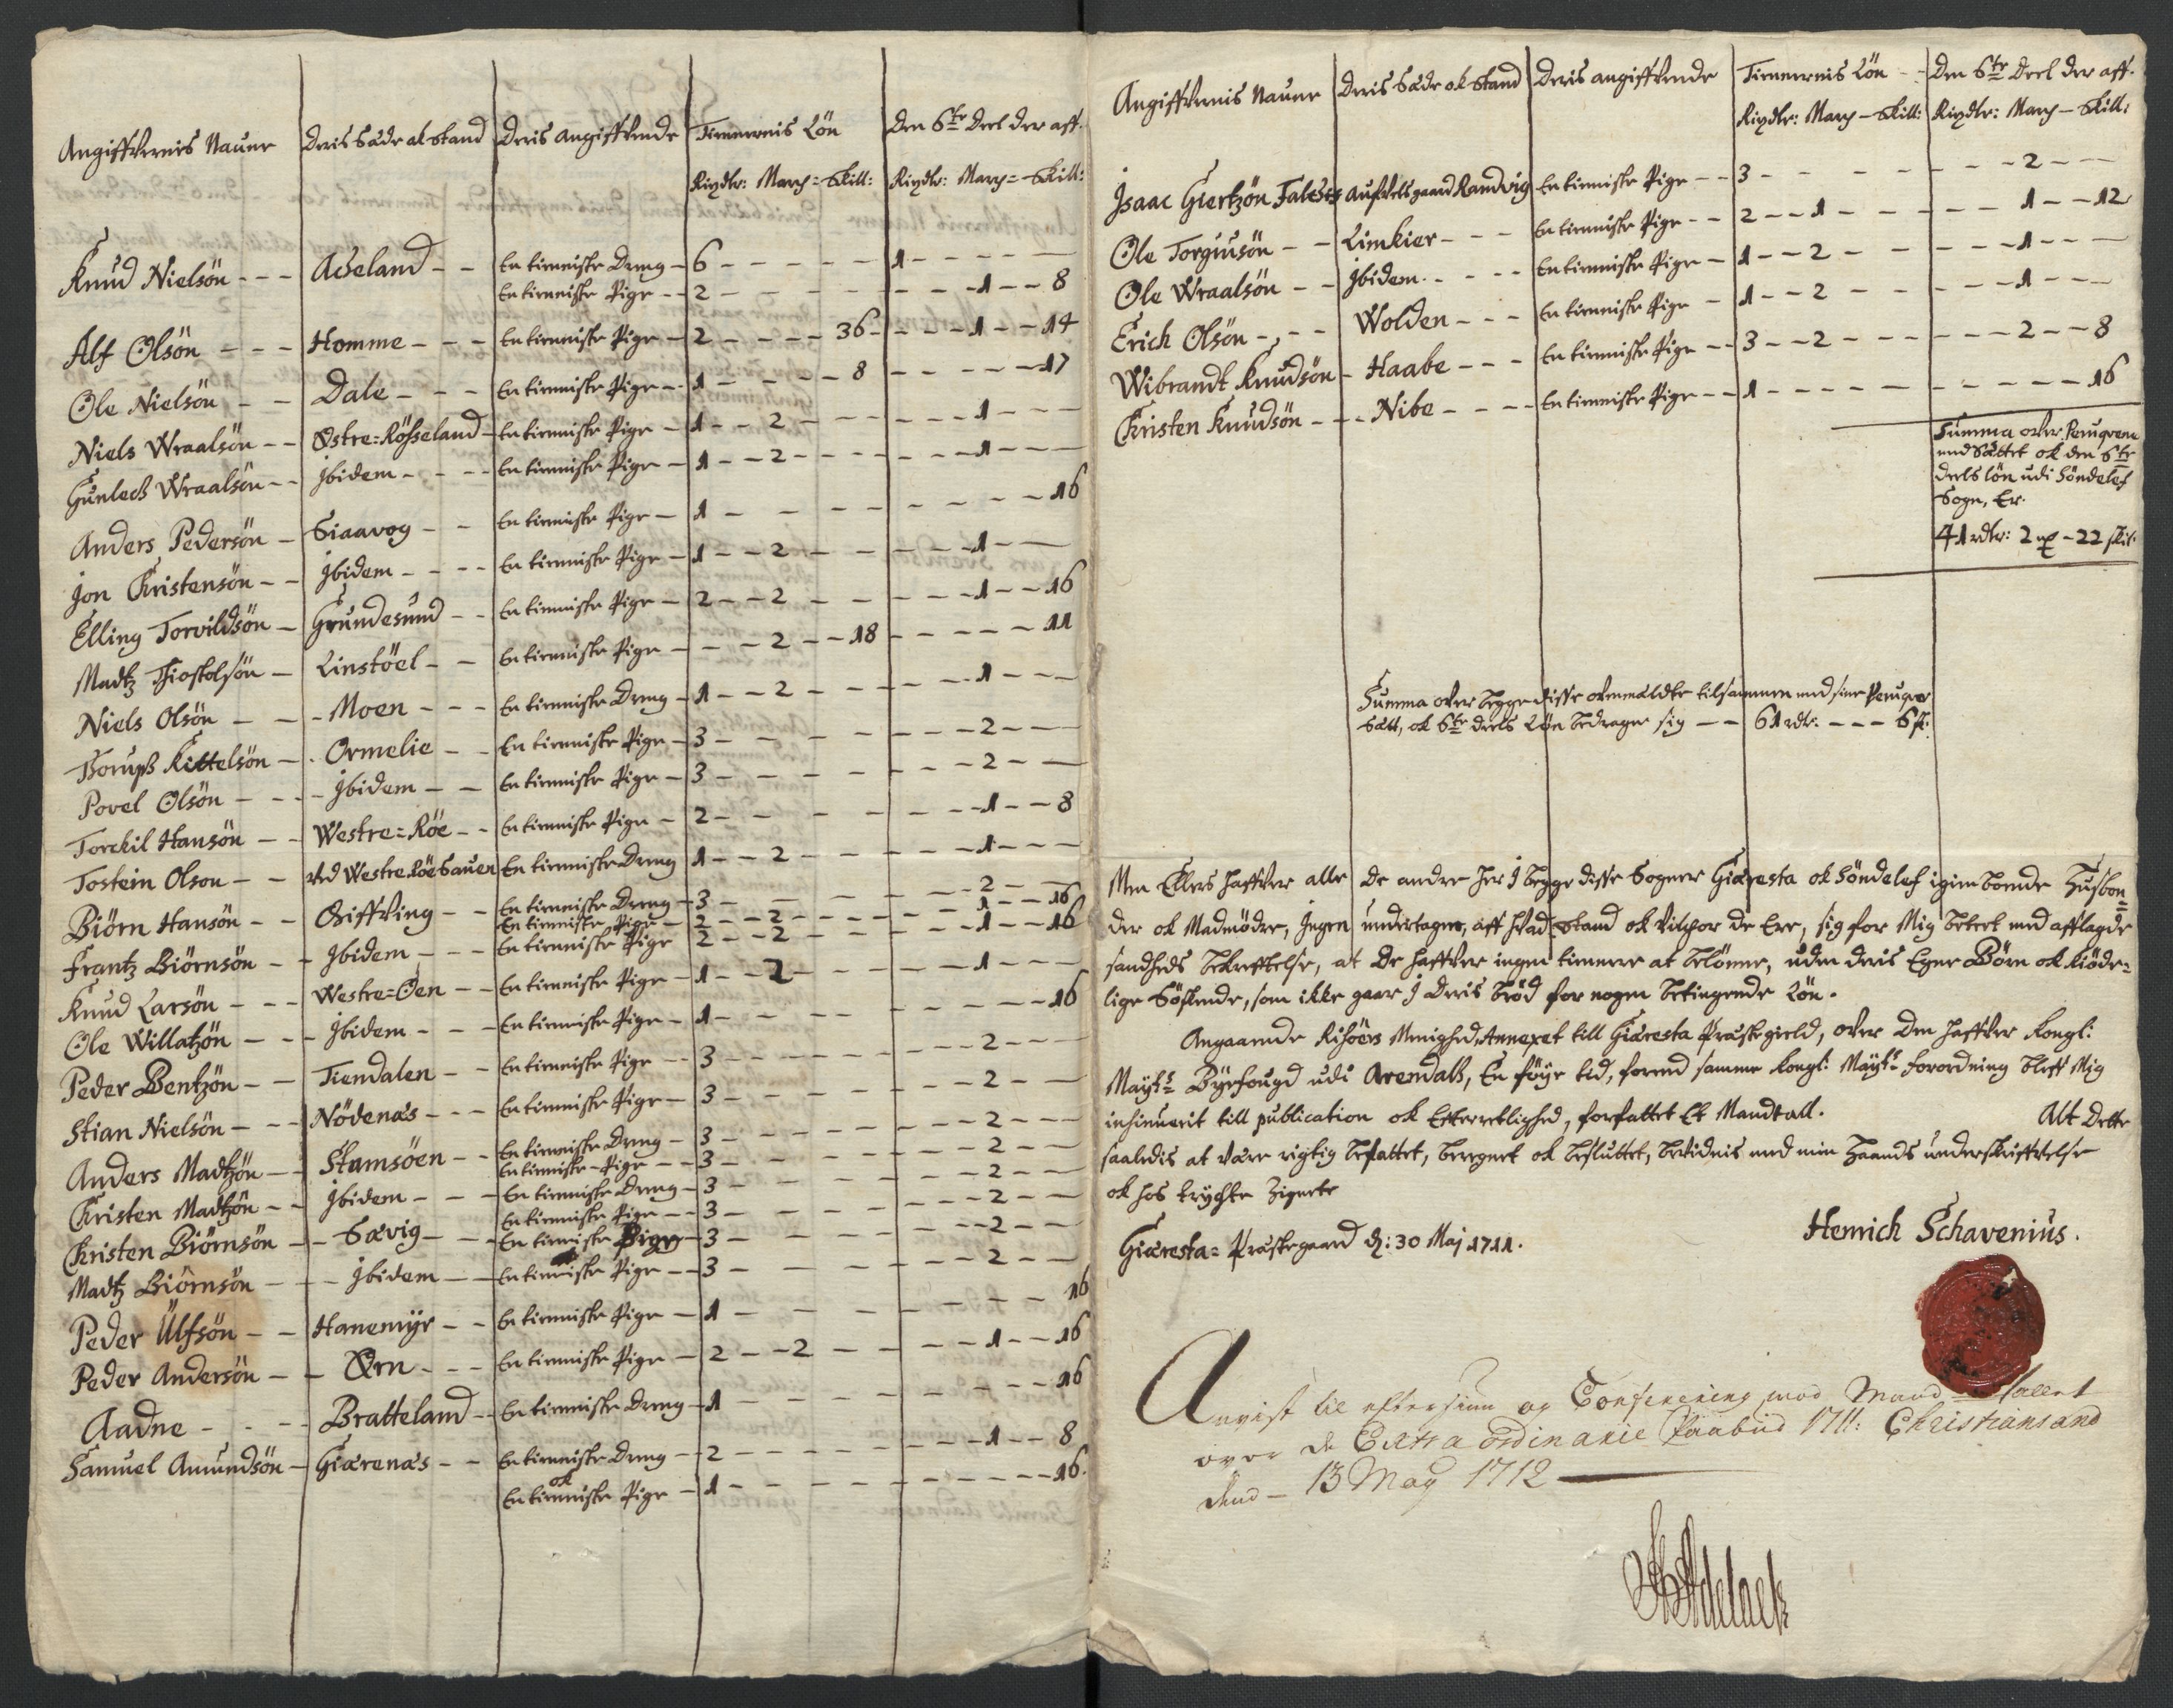 Angiffvernis Naune Deris Sæde ok Stand Deris Angiffvende Tiennernis Lön Den 6te Deel der aff.
Rixdlr: Marx = Skill: Rixdlr: Marx = Skill:
Knud Nielsön - - - Aaseland - - En tienniste Dreng - 6 - - - - - 1 - - - -
En tienniste Pige - - 2 - - - - - - - 1 - - 8
Alf Olsön - - - Homme - - - En tienniste Pige - 2 - - - - 36 - - - - 1 - - 14
Ole Nielsön - - Dale - - - En tienniste Pige - - 1 - - - - 8 - - - - - 17
Niels Wraalsön - - Östre=Rösseland - En tienniste Pige - 1 - - 2 - - - - - - 1 - - -
Gunlech Wraalsön - - Jbidem - - - - En tienniste Pige - 1 - - 2 - - - - - - - 1 - - -
Anders Pedersön - Siaavog - - En tienniste Pige - 1 - - - - - - - - 16
Jon Christensön - - Jbidem - - - - En tienniste Pige - 1 - - 2 - - - - - 1 - -
Elling Torvildsön - Grundesund - - En tienniste Pige - 2 - - 2 - - - - - - 1 - - 16
Madtz Thiostolsön - Linstöel - - En tienniste Pige - - - 2 - - 18 - - - - - 11
Niels Olsön - - - Moen - - - En tienniste Dreng - 1 - - 2 - - - - - - 1 - - -
Kittelsön - . Ormelie - - En tienniste Pige - 3 - - - - - - - 2 - - -
Povel Olsön - - - - Jbidem - - En tienniste Pige - 3 - - - - - - - 2 - -
Torckil Hansön - - Westre=Röe - - En tienniste Pige - 2 - - - - - - - 1 - - 8
Tostein Olson - - ved Westre Röe Sauen En tienniste Dreng 1 - - 2 - - - - - - 1 - - -
Biörn Hansön - - - En tienniste Dreng - 3 - - - - - - - 2 - -
En tienniste Pige - 2 - - 2 - - - - - - 1 - - 16
Frantz Biörnsön - - Jbidem - - - En tienniste Pige 2 - - 2 - - - - - - 1 - - 16
Knud Larsön - - - Westre=Öen - - En tienniste Pige - 1 - - 2 - - - - - - 1 - - -
Ole Willatzön - - - Jbidem - - - En tienniste Pige - 1 - - - - - - - - 16
Peder Bentzön - - Tiendalen - - En tienniste Pige - - 3 - - - - - - - 2 - - -
Stian Nielsön - - - Nödenæs - - - En tienniste Pige - 3 - - - - - - - 2 - -
Anders Madtzön - - Stamsöen - - En tienniste Dreng - 3 - - - - - - - 2 - - -
En tienniste Pige - - 3 - - - - - - 2 - -
Christen Madtzön - - Jbidem - - - En tienniste Dreng - 3 - - - - - - 2 - -
En tienniste Pige - - 3 - - - - - - 2 - -
Christen Biörnsön - - Sævig - - - En tienniste Pige - 3 - - - - - - 2 - -
Madtz Biörnsön - - - Jbidem - - En tienniste Pige - - 3 - - - - - - 2 - -
Peder Ülfsön - - Hanemÿr - - En tienniste Pige - 1 - - - - - - - 16
Peder Andersön - - Örn - - - En tienniste Pige - 2 - - 2 - - - - - 1 - - 16
Aadne - - - - Bratteland - - En tienniste Dreng - 1 - - - - - - - - 16
Samuel Amundsön - Giærenæs - - En tienniste Dreng - 2 - - - - - - - 1 - - 8
ok
En tienniste Pige - 1 - - - - - - - - - 16.
Angiffvernis Naune Deris Sæde ok Stand Deris angiffvende Tiennernis Lön - - Den 6te Deel der aff.
Rixdlr: Marx - Skill: Rixdlr: Marx - Skill:
Isaac Giertzön Falch gaard Randvig En tienniste Pige - - 3 - - - - - - - 2 - -
Ole Torgiusön - - Limkier - - - En tienniste Pige - - 2 - - 1 - - - - - - 1 - - 12
Ole Wraalsön - - Jbidem - - - - En tienniste Pige - 1 - - 2 - - - - - - 1 - - -
Erich Olsön - - - Wolden - - - En tienniste Pige - 1 - - 2 - - - - - - 1 - - -
Wibrandt Knudsön - Haabe - - - En tienniste Pige - - 3 - - 2 - - - - - - 2 - - 8
Christen Knudsön - - - Nibe - - - - En tienniste Pige - - 1 - - - - - - - - - 16
Summa over Peruqvene
med Sættet ok den 6te
deels lön udi Söndelef
Sogn, Er.
41 rdlr: 2 mk - 22 skil:
Summa over begge disse ovenmældte tilsammen med sine Peruqver
Sætt, ok 6te deels Lön bedrager sig - - 61 rdlr: - - - 6 sk:
Men Ellers haffver alle de andre her J begge disse Sogner Giæresta ok Söndelef igiemboende Husbon=
der ok Madmödre, Jngen undertagen, aff hvad Stand ok vilchor de Ere, sig for Mig beteet med afflagde
sandheds bekrefttelse, at De haffver ingen tiennere at belönne, uden deris Egne Börn ok Kiöde=
lige Söskende, som ikke gaar J Deris bröd for nogen betingende Lön.
Angaaende Risöers Menighed, Annexet till Giæresta Præstegield, over den haffver Kongl:
Mayts Byefougd udi Arendall, En föye tid, forend samme Kongl: Mayts Forordning bleff Mig
insinuerit till publication ok Efterretlighed, forfattet Et Mandtall. Alt Dette
saaledis at være rigtig befattet, beregnet ok besluttet, bevidnis med min haands underskrifftelse
ok hos trychte Zignete
Giæresta= Præstegaard d: 30 Maj 1711.
Henrich Schavenius.
Anvist til efftersiun og Conferering mod Mand tallet
over de Extra ordinarie Paabud 1711: Christiansand
dend - 13 May 1712